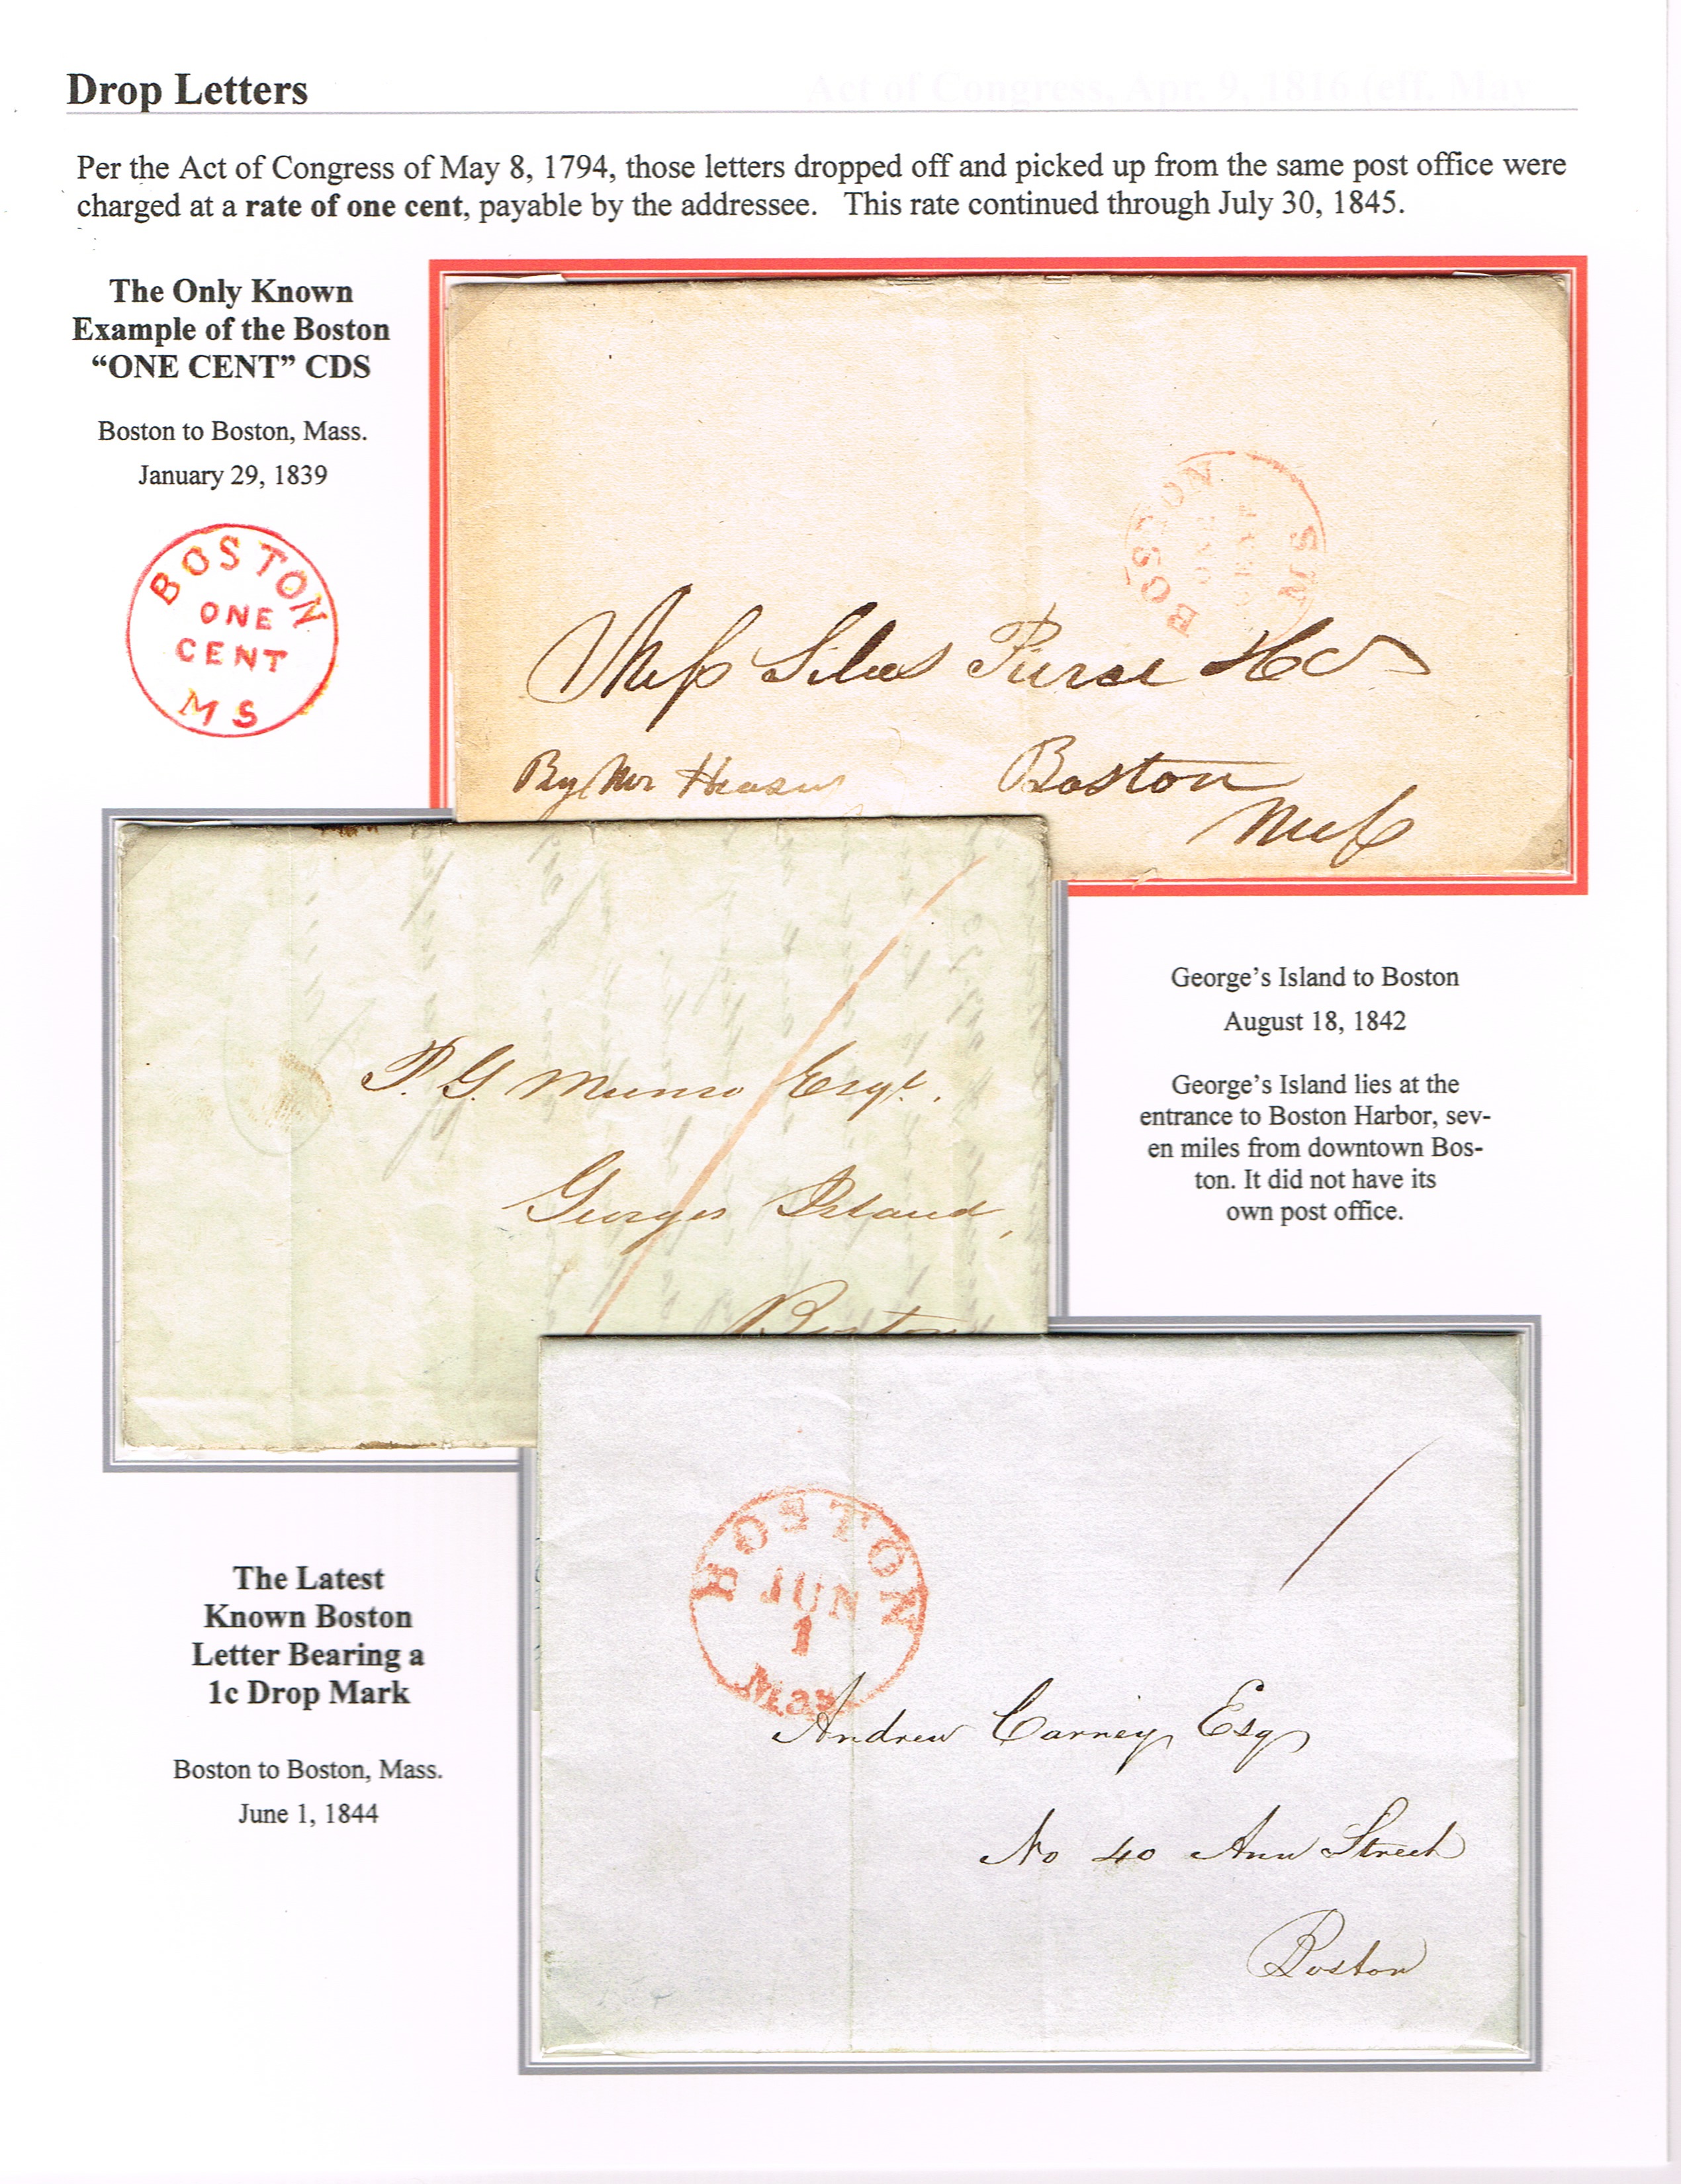 Drop Letters
Act of Congress, Apr. 9, 1816 (eff. May
Per the Act of Congress of May 8, 1794, those letters dropped off and picked up from the same post office were
charged at a rate of one cent, payable by the addressee. This rate continued through July 30, 1845.
The Only Known
Example of the Boston
“ONE CENT” CDS
Boston to Boston, Mass.
January 29, 1839
BOSTON
ONE
CENT
MS
BOSTON
ONE
CENT
MS
Mess Silas Pierce & Co
By Mr
Boston
Mass
P. G. Munro Esqr.
Georges Island,
Boston
George’s Island to Boston
August 18, 1842
George’s Island lies at the
entrance to Boston Harbor, sev-
en miles from downtown Bos-
ton. It did not have its
own post office.
The Latest
Known Boston
Letter Bearing a
1c Drop Mark
Boston to Boston, Mass.
June 1, 1844
BOSTON
JUN
1
Mas
Andrew Carney Esq
No 40 Ann Street
Boston